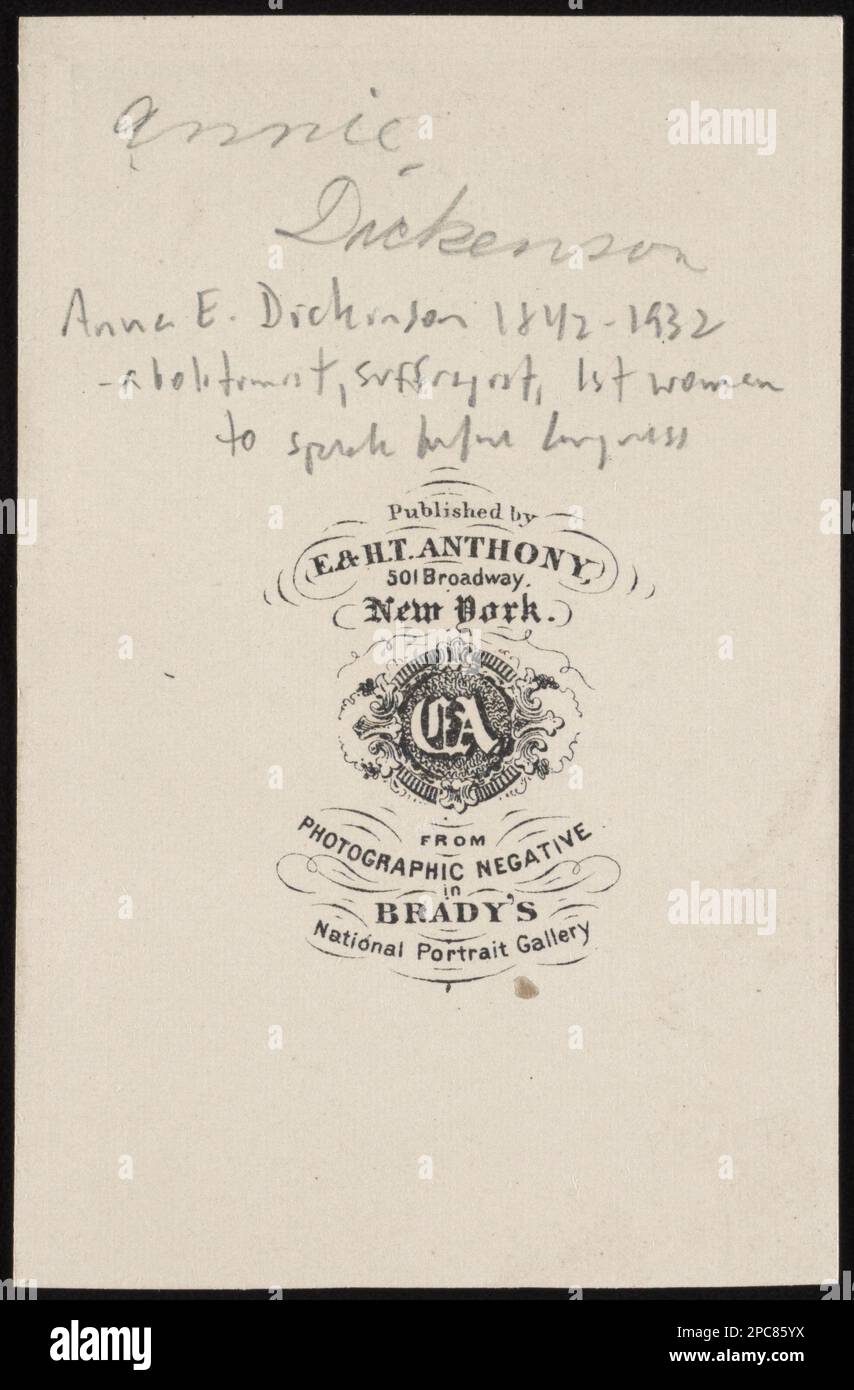 Annie
Dickenson
Anna E. Dickinson 1842-1932
- abolitionist, suffragist, 1st women
to speak before Congress
Published by
E. & H.T. ANTHONY,
501 Broadway.
New York.
CA
FROM
PHOTOGRAPHIC NEGATIVE
in
BRADY'S
National Portrait Gallery
alamy
Image ID: 2PC85YX
www.alamy.com